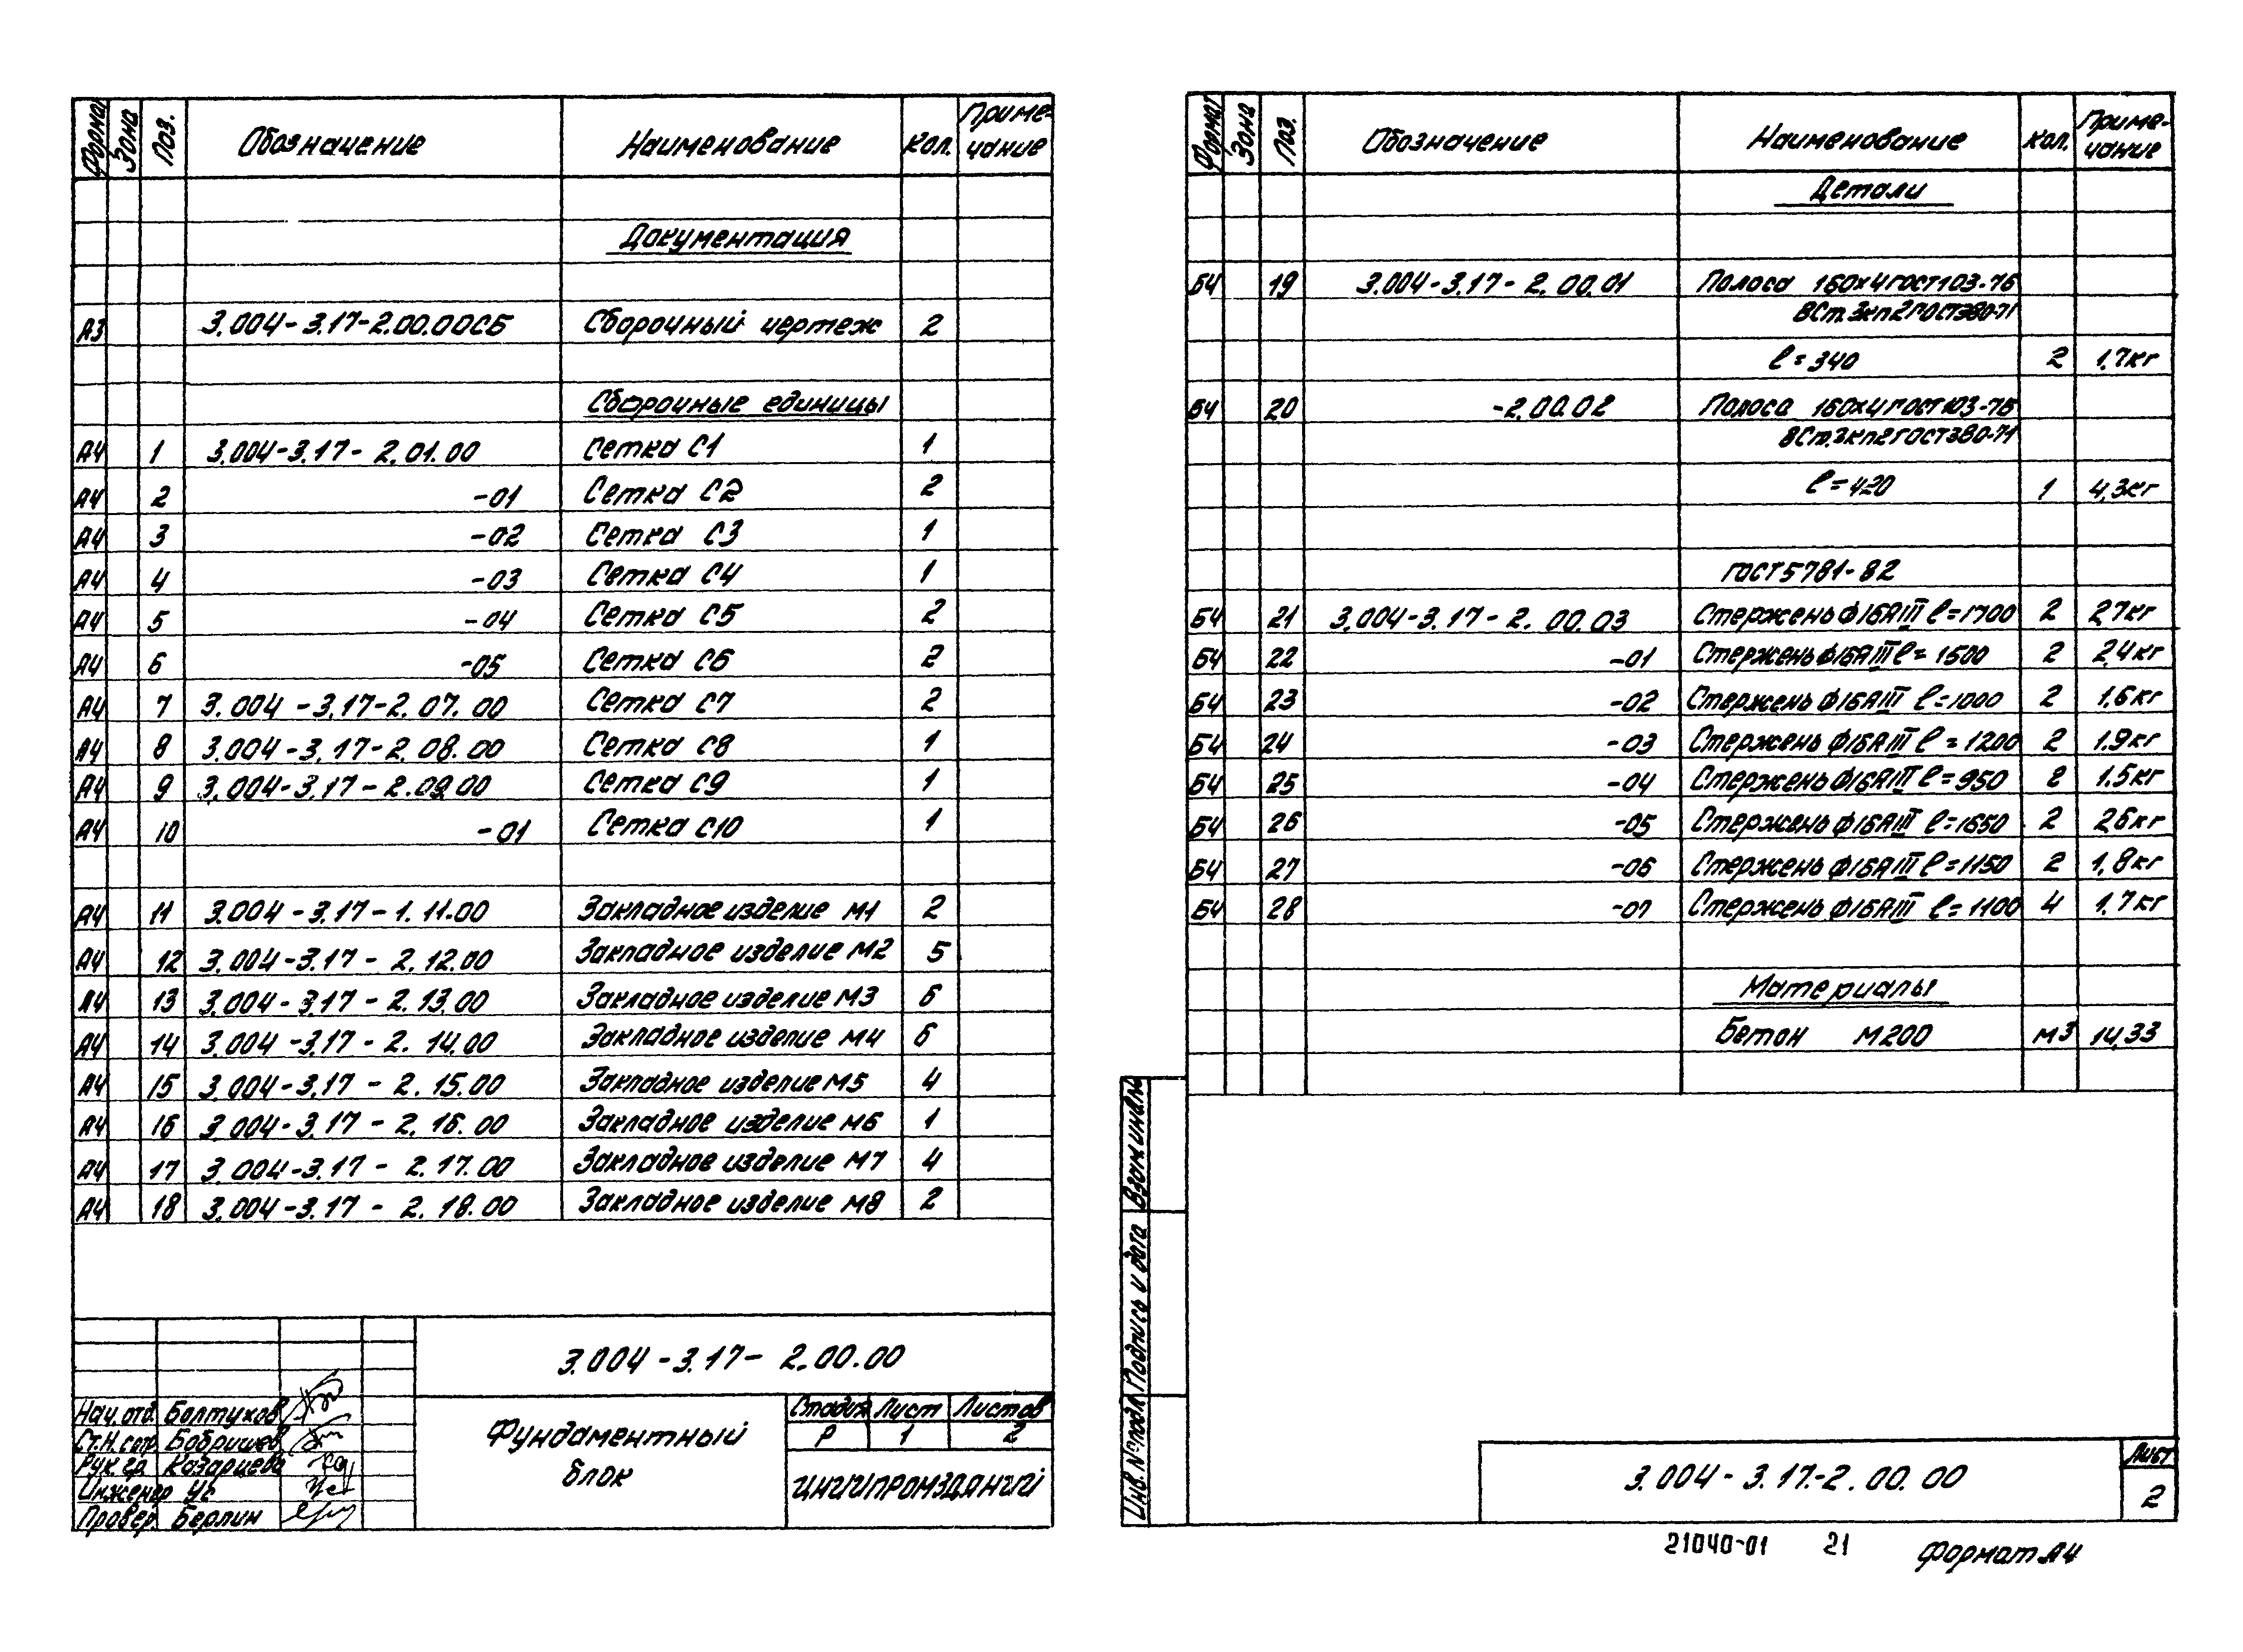 Формат Зона Поз. Обозначение Наименование Кол. Приме-
чание
Документация
А3 3.004-3.17-2.00.00СБ Сборочный чертеж 2
Сборочные единицы
А4 1 3.004-3.17-2.01.00 Сетка С1 1
А4 2 -01 Сетка С2 2
А4 3 -02 Сетка С3 1
А4 4 -03 Сетка С4 1
А4 5 -04 Сетка С5 2
А4 6 -05 Сетка С6 2
А4 7 3.004-3.17-2.07.00 Сетка С7 2
А4 8 3.004-3.17-2.08.00 Сетка С8 1
А4 9 3.004-3.17-2.09.00 Сетка С9 1
А4 10 -01 Сетка С10 1
А4 11 3.004-3.17-1.11.00 Закладное изделие М1 2
А4 12 3.004-3.17-2.12.00 Закладное изделие М2 5
А4 13 3.004-3.17-2.13.00 Закладное изделие М3 6
А4 14 3.004-3.17-2.14.00 Закладное изделие М4 6
А4 15 3.004-3.17-2.15.00 Закладное изделие М5 4
А4 16 3.004-3.17-2.16.00 Закладное изделие М6 1
А4 17 3.004-3.17-2.17.00 Закладное изделие М7 4
А4 18 3.004-3.17-2.18.00 Закладное изделие М8 2
3.004-3.17-2.00.00
Нач. отд. Болтухов
Ст.н.сотр. Бобришев
Рук. гр. Казарцева
Инженер Ус
Провер. Берлин
Фундаментный
блок
Стадия Лист Листов
Р 1 2
ЦНИИПРОМЗДАНИЙ
Формат Зона Поз. Обозначение Наименование Кол. Приме-
чание
Детали
БЧ 19 3.004-3.17-2.00.01 Полоса 160х4 ГОСТ103-76
ВСт.3кп2 ГОСТ380-71
ℓ=340 2 1,7кг
БЧ 20 -2.00.02 Полоса 160х4 ГОСТ103-76
ВСт.3кп2 ГОСТ380-71
ℓ=420 1 4,3кг
ГОСТ5781-82
БЧ 21 3.004-3.17-2.00.03 Стержень Ф16АIII ℓ=1700 2 2,7кг
БЧ 22 -01 Стержень Ф16АIII ℓ=1500 2 2,4кг
БЧ 23 -02 Стержень Ф16АIII ℓ=1000 2 1,6кг
БЧ 24 -03 Стержень Ф16АIII ℓ=1200 2 1,9кг
БЧ 25 -04 Стержень Ф16АIII ℓ=950 2 1.5кг
БЧ 26 -05 Стержень Ф16АIII ℓ=1650 2 2,6кг
БЧ 27 -06 Стержень Ф16АIII ℓ=1150 2 1,8кг
БЧ 28 -07 Стержень Ф16АIII ℓ=1100 4 1,7кг
Материалы
Бетон М200 м3 14,33
Инв. № подл. Подпись и дата Взам.инв.№
3.004-3.17-2.00.00
Лист
2
21040-01 21 Формат А4